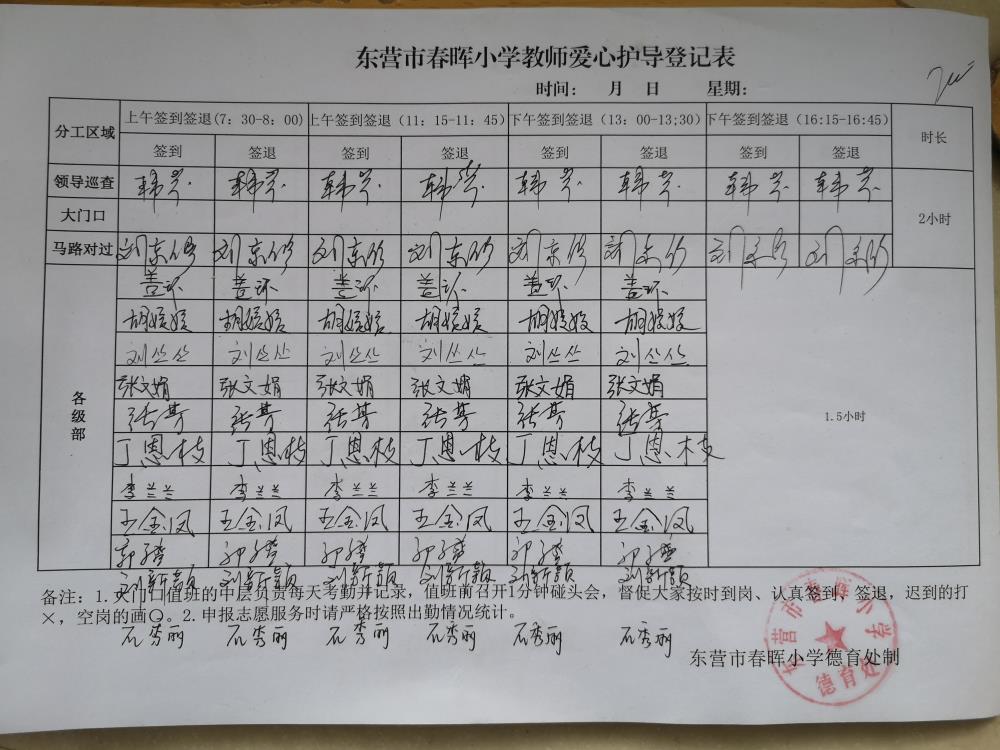 东营市春晖小学教师爱心护导登记表
时间： 月 日 星期：
分工区域 上午签到签退(7：30-8：00) 上午签到签退（11：15-11：45） 下午签到签退（13：00-13;30） 下午签到签退（16:15-16:45） 时长
签到 签退 签到 签退 签到 签退 签到 签退
领导巡查 韩芳 韩芳 韩芳 韩芳 韩芳 韩芳 韩芳 韩芳 2小时
大门口
马路对过 刘东修 刘东修 刘东修 刘东修 刘东修 刘东修 刘东修 刘东修
各级部 盖环 盖环 盖环 盖环 盖环 盖环 1.5小时
胡媛媛 胡媛媛 胡媛媛 胡媛媛 胡媛媛 胡媛媛
刘丛丛 刘丛丛 刘丛丛 刘丛丛 刘丛丛 刘丛丛
张文娟 张文娟 张文娟 张文娟 张文娟 张文娟
张芳 张芳 张芳 张芳 张芳 张芳
丁恩枝 丁恩枝 丁恩枝 丁恩枝 丁恩枝 丁恩枝
李兰兰 李兰兰 李兰兰 李兰兰 李兰兰 李兰兰
王金凤 王金凤 王金凤 王金凤 王金凤 王金凤
刘新颖 刘新颖 刘新颖 刘新颖 刘新颖 刘新颖
备注：1.大门口值班的中层负责每天考勤并记录，值班前召开1分钟碰头会，督促大家按时到岗、认真签到、签退，迟到的打
×，空岗的画○。2.申报志愿服务时请严格按照出勤情况统计。
石秀丽 石秀丽 石秀丽 石秀丽 石秀丽 石秀丽
东营市春晖小学德育处制
东营市春晖小学
德育处